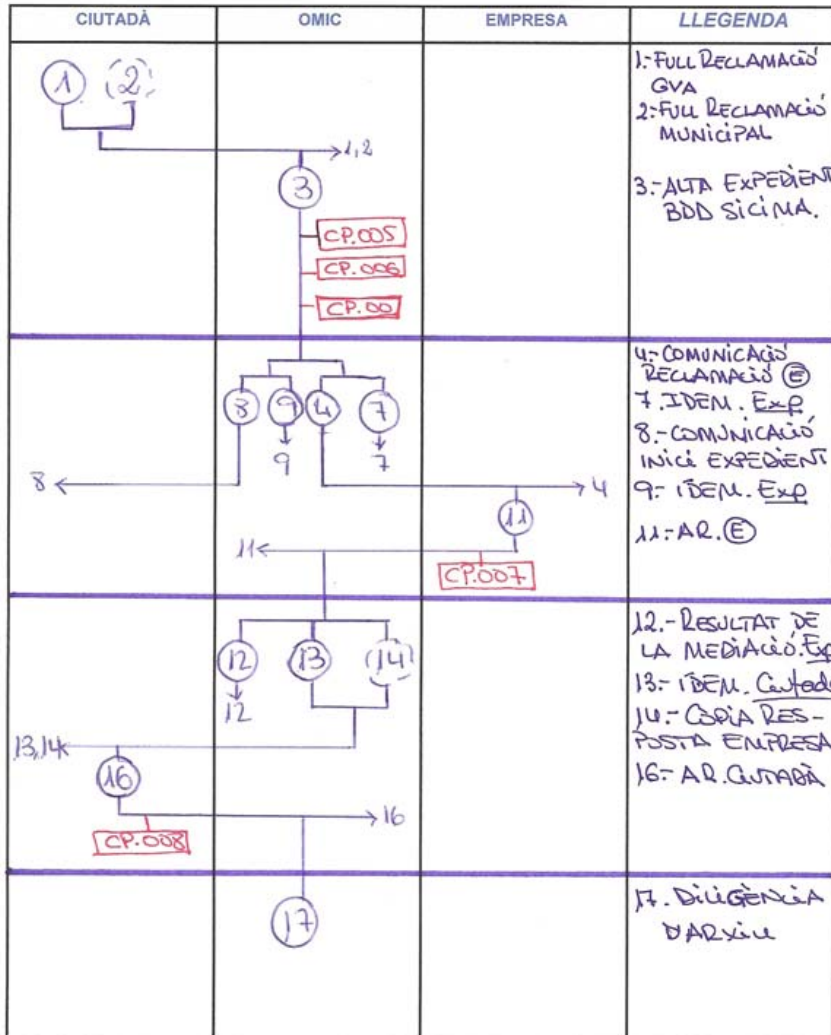 CIUTADÀ OMIC EMPRESA LLEGENDA
1 2
1,2
3
CP.005
CP.006
CP.00
1.- FULL RECLAMACIÓ
GVA
2.- FULL RECLAMACIÓ
MUNICIPAL
3.- ALTA EXPEDIENT
BDD SICIMA.
8 9 4 7
9 7
8
4
11
11
CP.007
4.- COMUNICACIÓ
RECLAMACIÓ E
7. IDEM. Exp
8.- COMUNICACIÓ
INICI EXPEDIENT
9.- IDEM. Exp
11.- AR. E
12 13 14
12
13,14
16
16
CP.008
12.- RESULTAT DE
LA MEDIACIÓ. Exp
13.- IDEM. Ciutadà
14.- CÒPIA RES-
POSTA EMPRESA
16.- AR. CIUTADÀ
17
17. DILIGÈNCIA
D'ARXIU